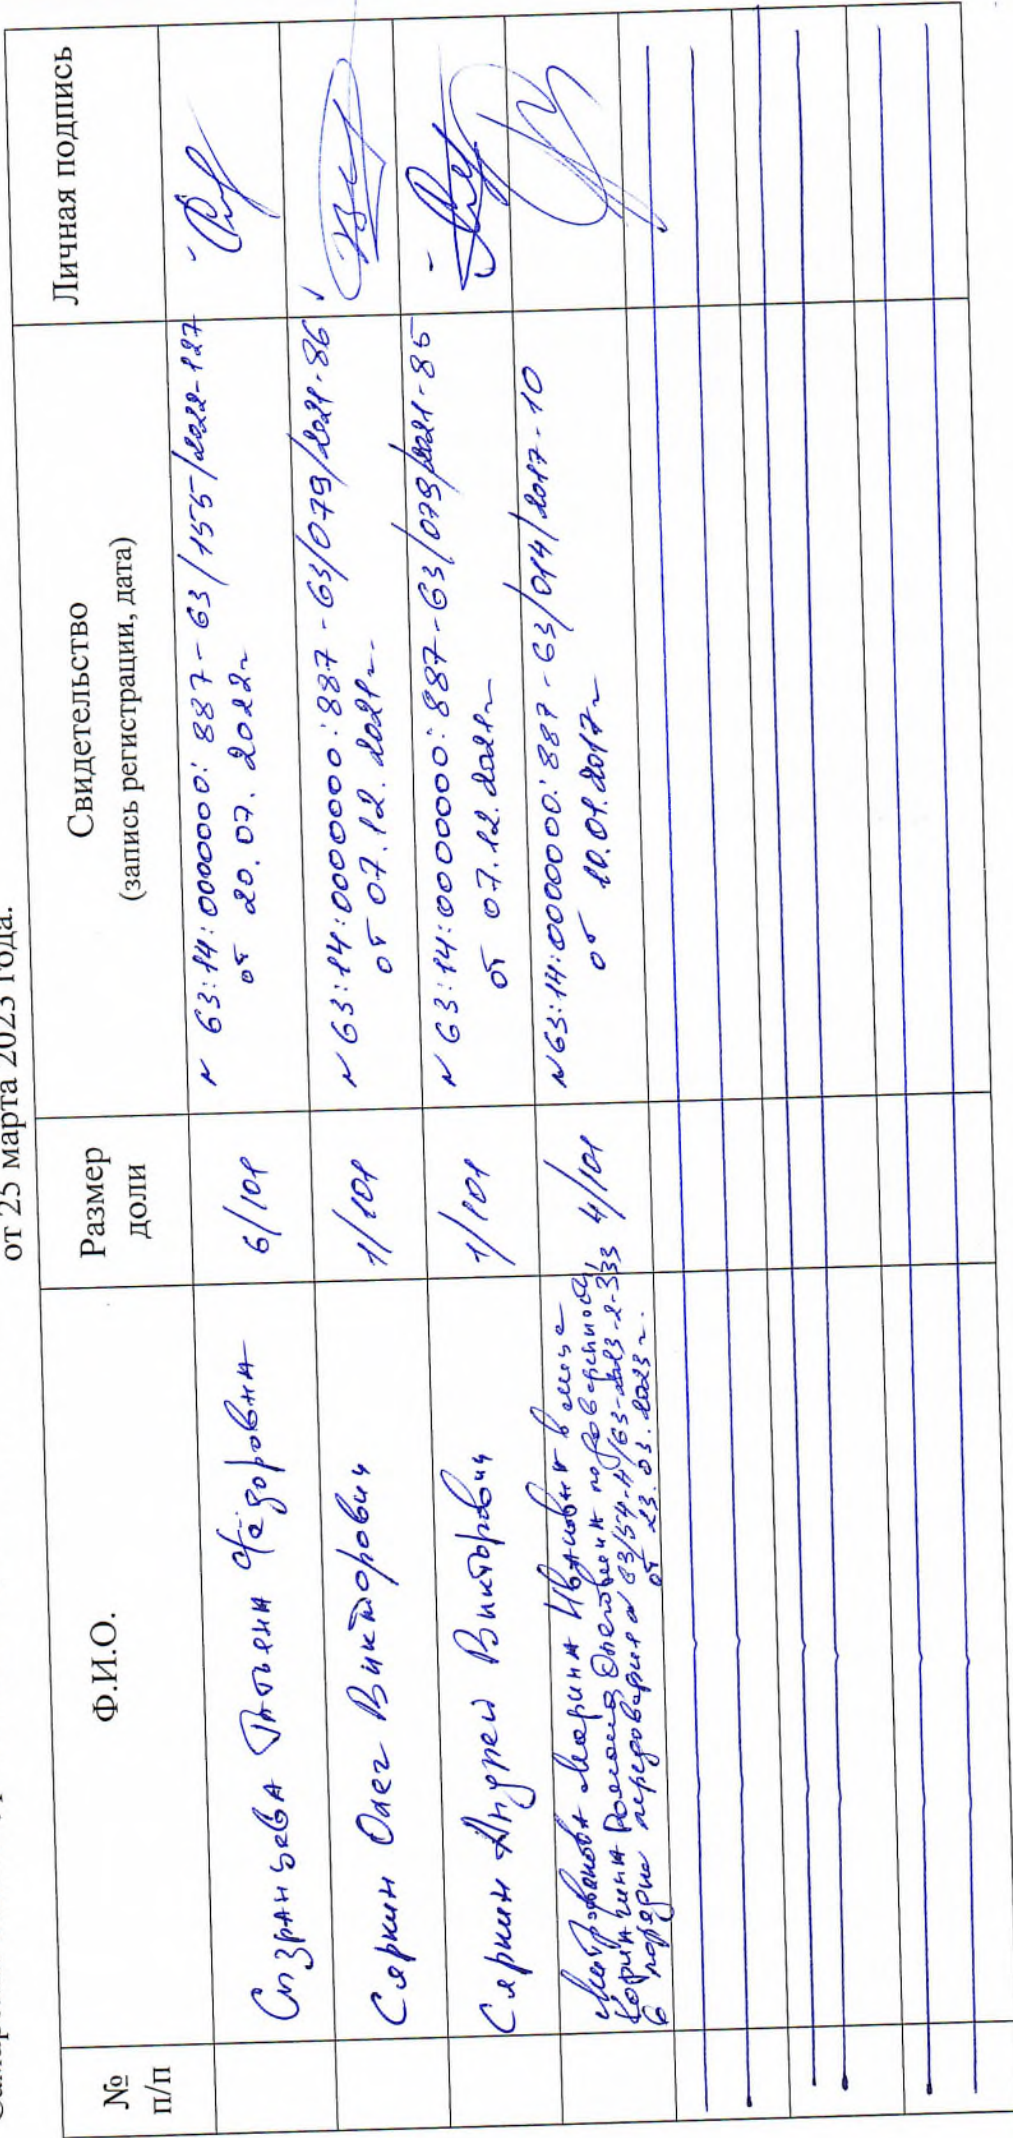 от 25 марта 2023 года.
№ п/п
Ф.И.О.
Размер доли
Свидетельство
(запись регистрации, дата)
Личная подпись
Сызранцева Татьяна Фёдоровна
6/101
№ 63:14:0000000:887-63/155/2022-127
от 20.07.2022г
Сяркин Олег Викторович
1/101
№ 63:14:0000000:887-63/079/2021-86
от 07.12.2021г.
Сяркин Андрей Викторович
1/101
№ 63:14:0000000:887-63/079/2021-85
от 07.12.2021г
Митрофанова Марина Ивановна в лице
Романа Олеговича по доверенности,
в порядке передоверия № 63/54-н/63-2023-2-333
от 23.03.2023г.
4/101
№63:14:0000000:887-63/014/2017-10
от 10.01.2017г